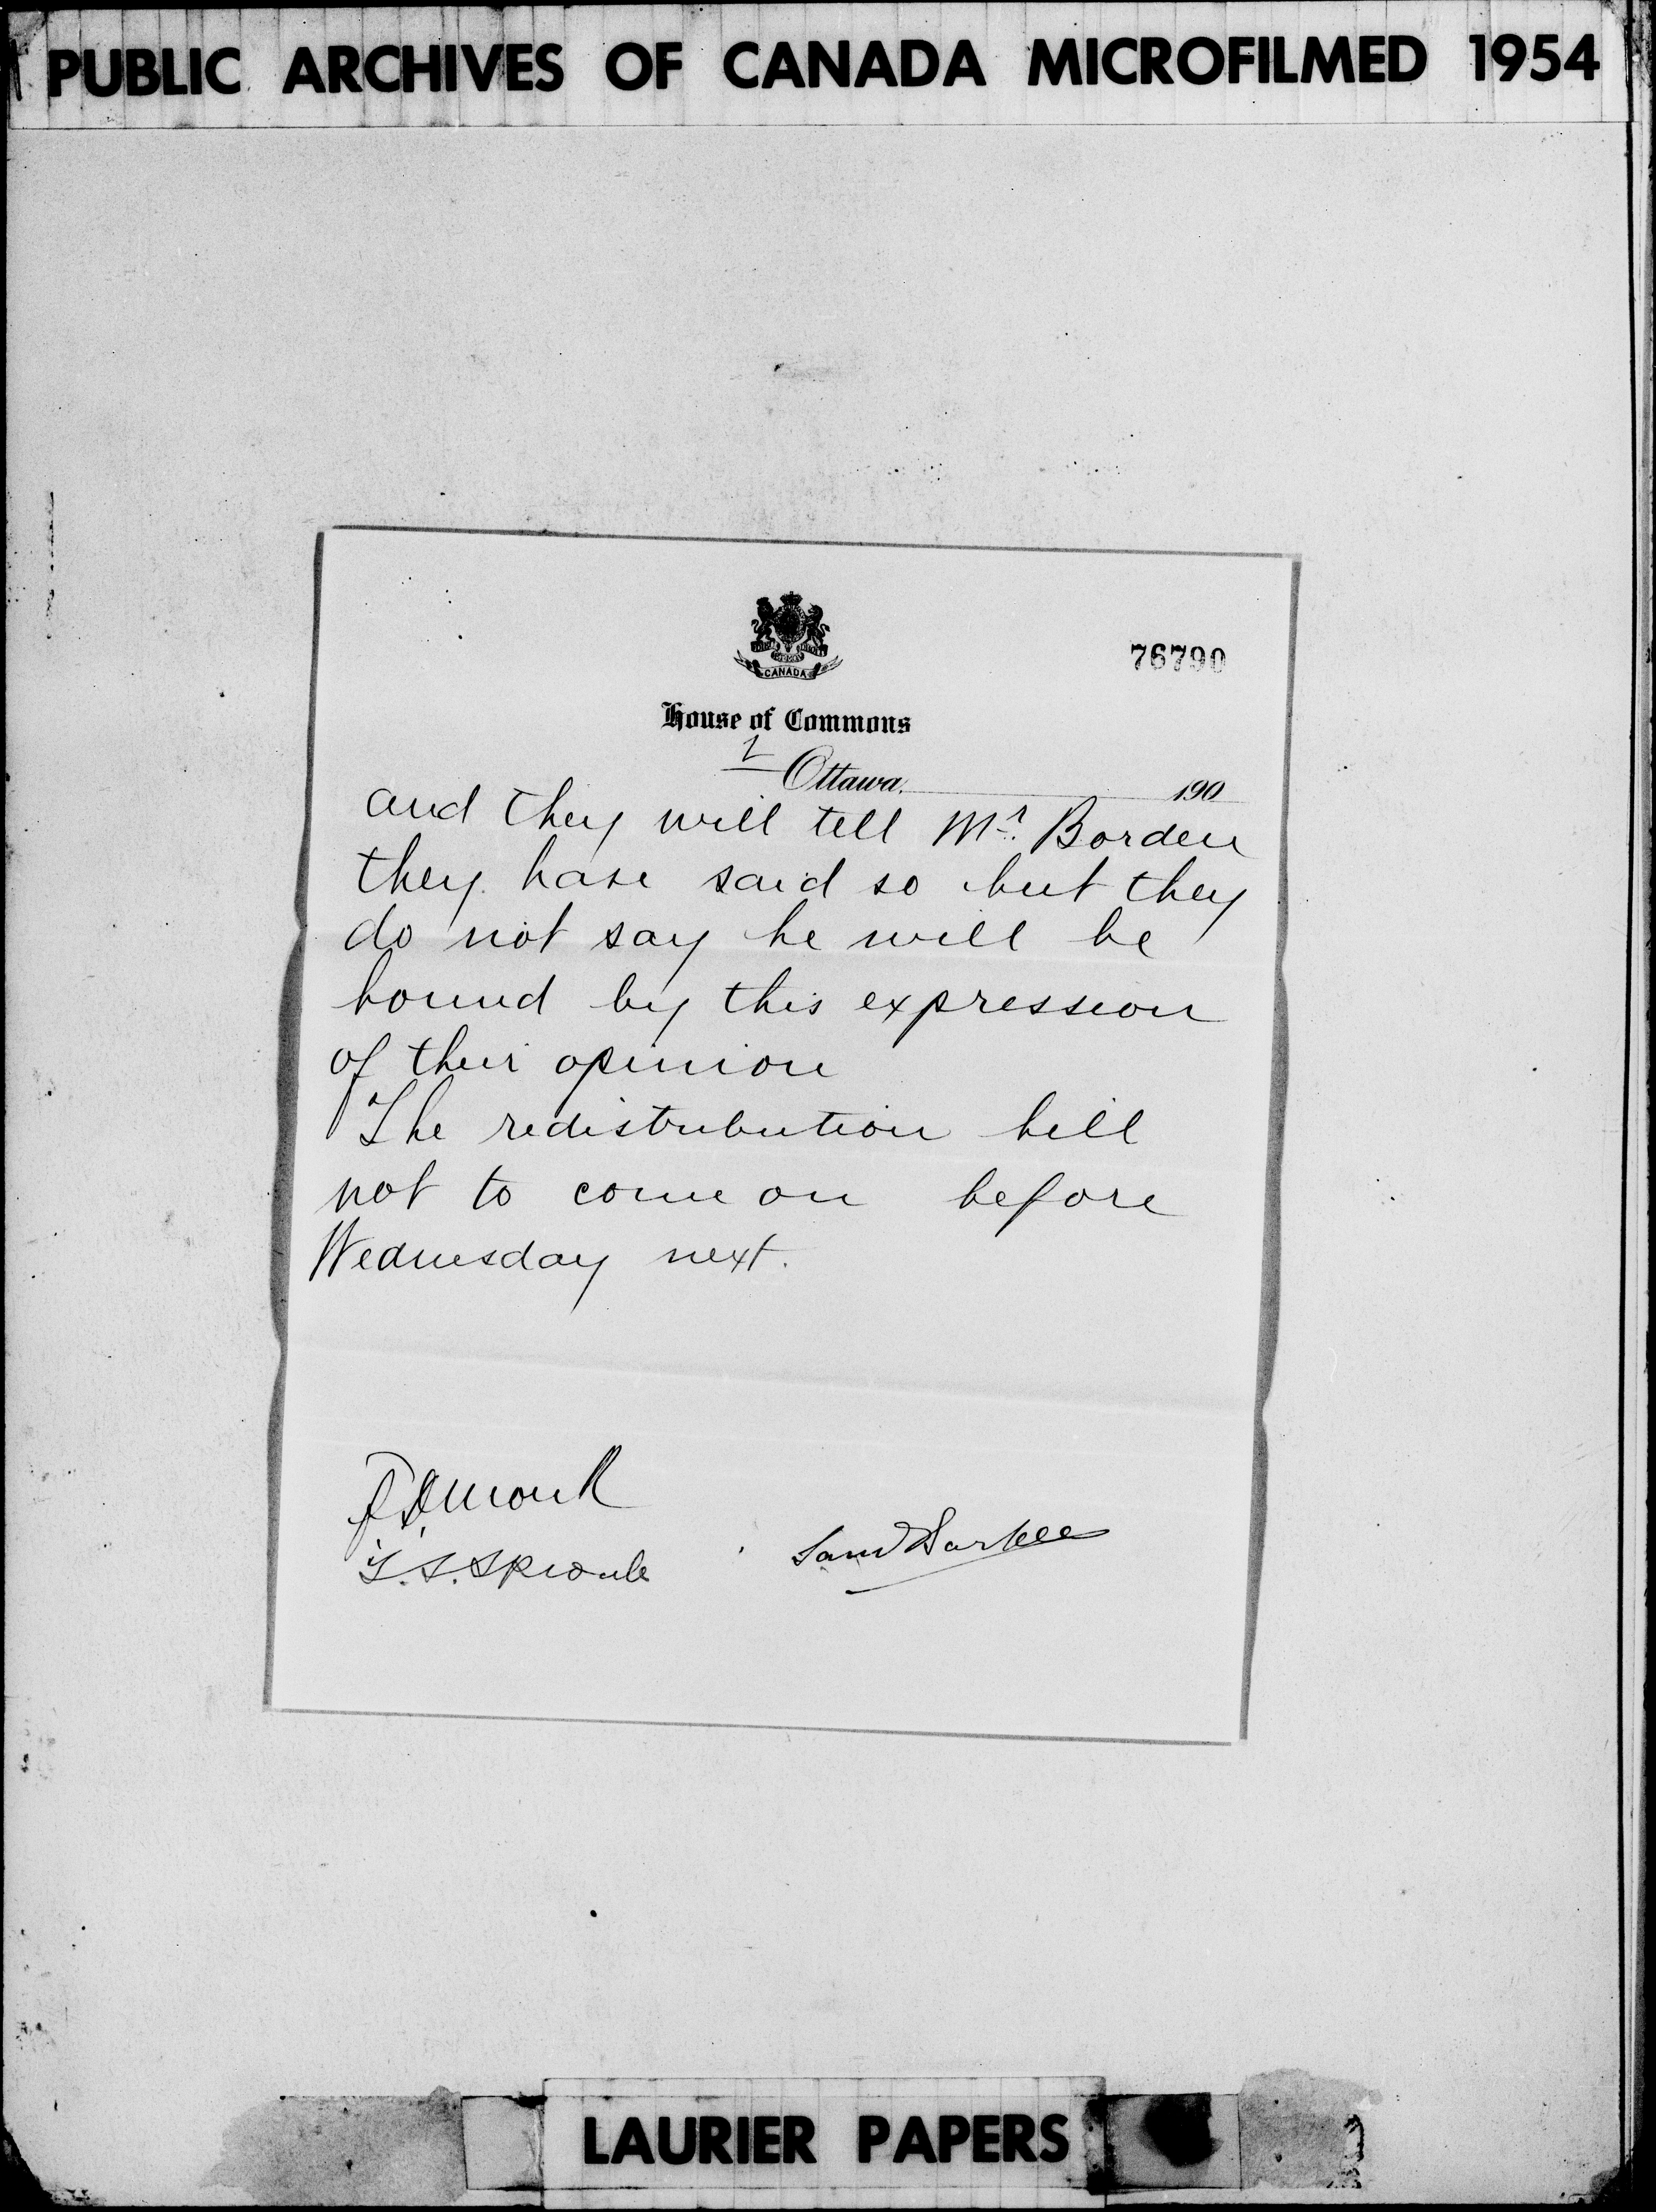 PUBLIC ARCHIVES OF CANADA MICROFILMED 1954
CANADA
76790
House of Commons
2
Ottawa, 190
and they will tell Mr. Borden
they have said so but they
do not say he will be
bound by this expression
of their opinion
The redistribution bill
not to come on before
Wednesday next.
F D Monk
T. S. Sproule
Sam Barker
LAURIER PAPERS